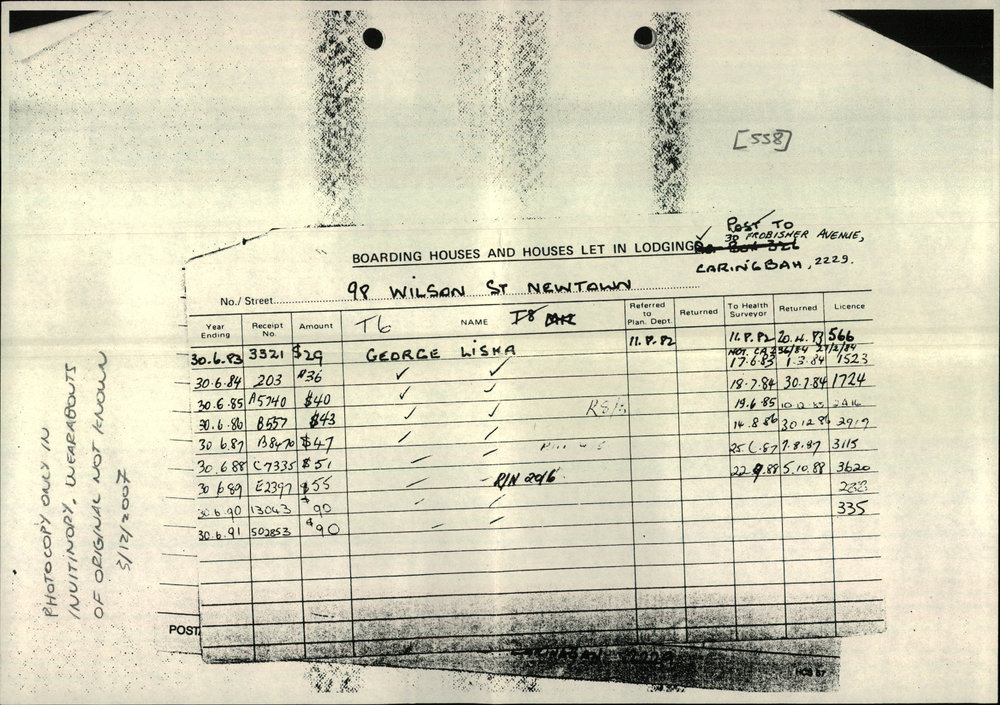 [558]
POST TO
30 FROBISHER AVENUE,
CARINGBAH, 2229.
BOARDING HOUSES AND HOUSES LET IN LODGINGS
No./Street 98 WILSON ST NEWTOWN
Year Ending Receipt No. Amount T6 NAME I8 Referred to Plan. Dept. Returned To Health Surveyor Returned Licence
30.6.83 3321 $29 GEORGE LISKA 11.8.82 11.8.82 20.4.83 566
30.6.84 203 $36 ✓ ✓ 17.6.83 1.3.84 1523
30.6.85 A5740 $40 ✓ ✓ 18.7.84 30.7.84 1724
30.6.86 B557 $43 ✓ ✓ 19.6.85 10.12.85 2416
30.6.87 B8470 $47 14.8.86 30.12.86 2919
30.6.88 C7335 $51 25.6.87 7.8.87 3115
30.6.89 E2397 $55 R/N 2016. 22.9.88 5.10.88 3620
30.6.90 13043 $90
30.6.91 502853 $90 335
POST
PHOTOCOPY ONLY IN
INVITINOPY, WEARABOUTS
OF ORIGINAL NOT KNOWN
3/12/2007